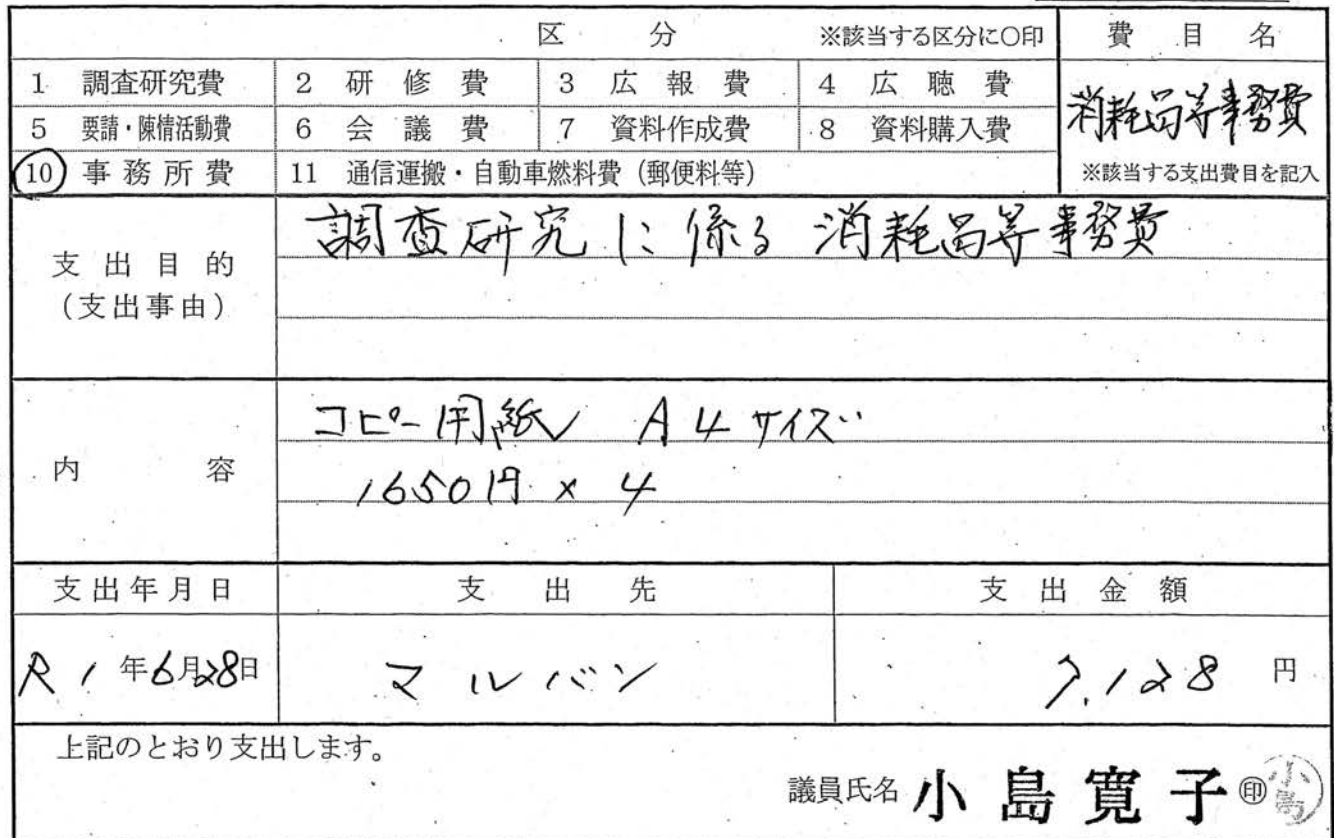 区 分 ※該当する区分に〇印 費目名
1 調査研究費 2 研修費 3 広報費 4 広聴費
消耗品等事務費
5 要請・陳情活動費 6 会議費 7 資料作成費 8 資料購入費
10 事務所費 11 通信運搬・自動車燃料費(郵便料等) ※該当する支出費目を記入
調査研究に係る消耗品等事務費
支出目的
(支出事由)
コピー用紙 A4サイズ
内容
1650円×4
支出年月日 支出先 支出金額
R1年6月28日 マルバン 7,128円
上記のとおり支出します。
議員氏名 小島寛子 ㊞ 小島